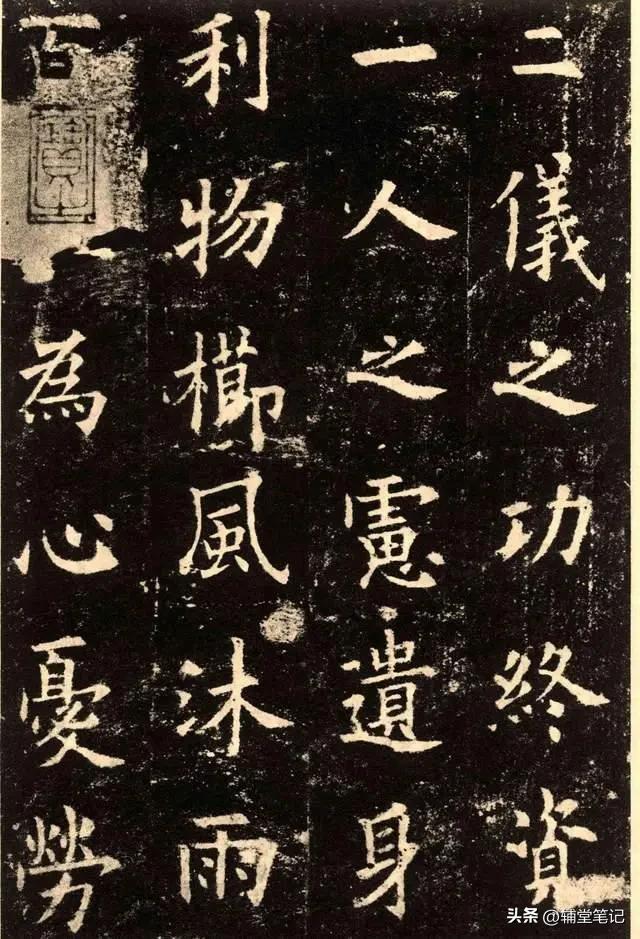 二儀之功終資
一人之慮遺身
利物櫛風沐雨
百為心憂勞
头条 @辅堂笔记